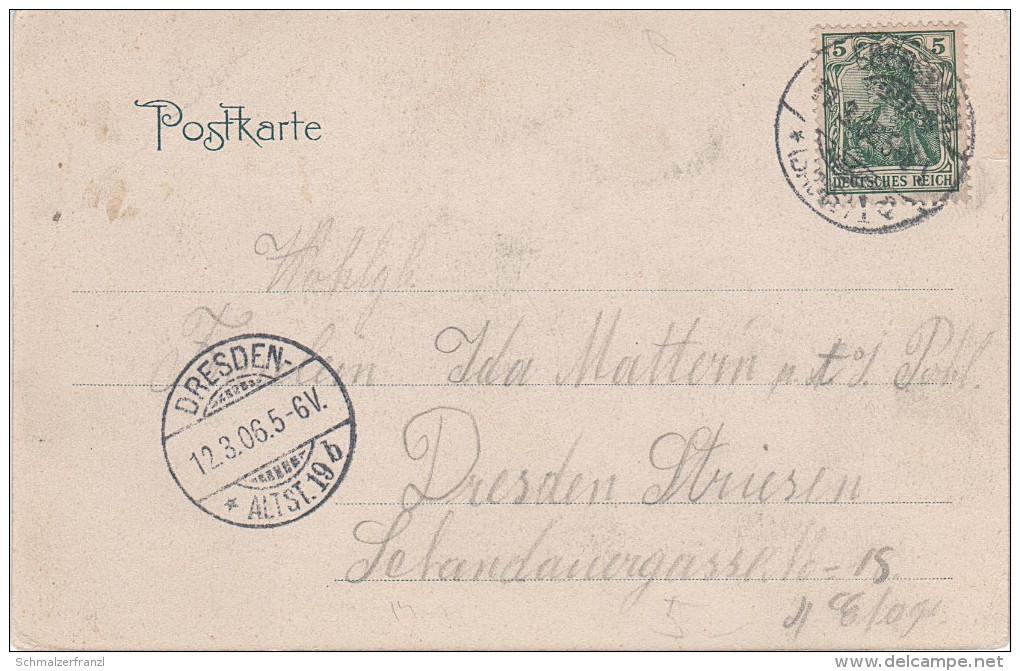 Postkarte
5 5
DEUTSCHES REICH
Wohlgb.
Fräulein Ida Mattern p. A. J. Pohl.
DRESDEN-
12.3.06.5-6V.
* ALTST. 19 b
Dresden Striesen
18
4 Etage
5
Schmalzerfranzl
delcampe.net